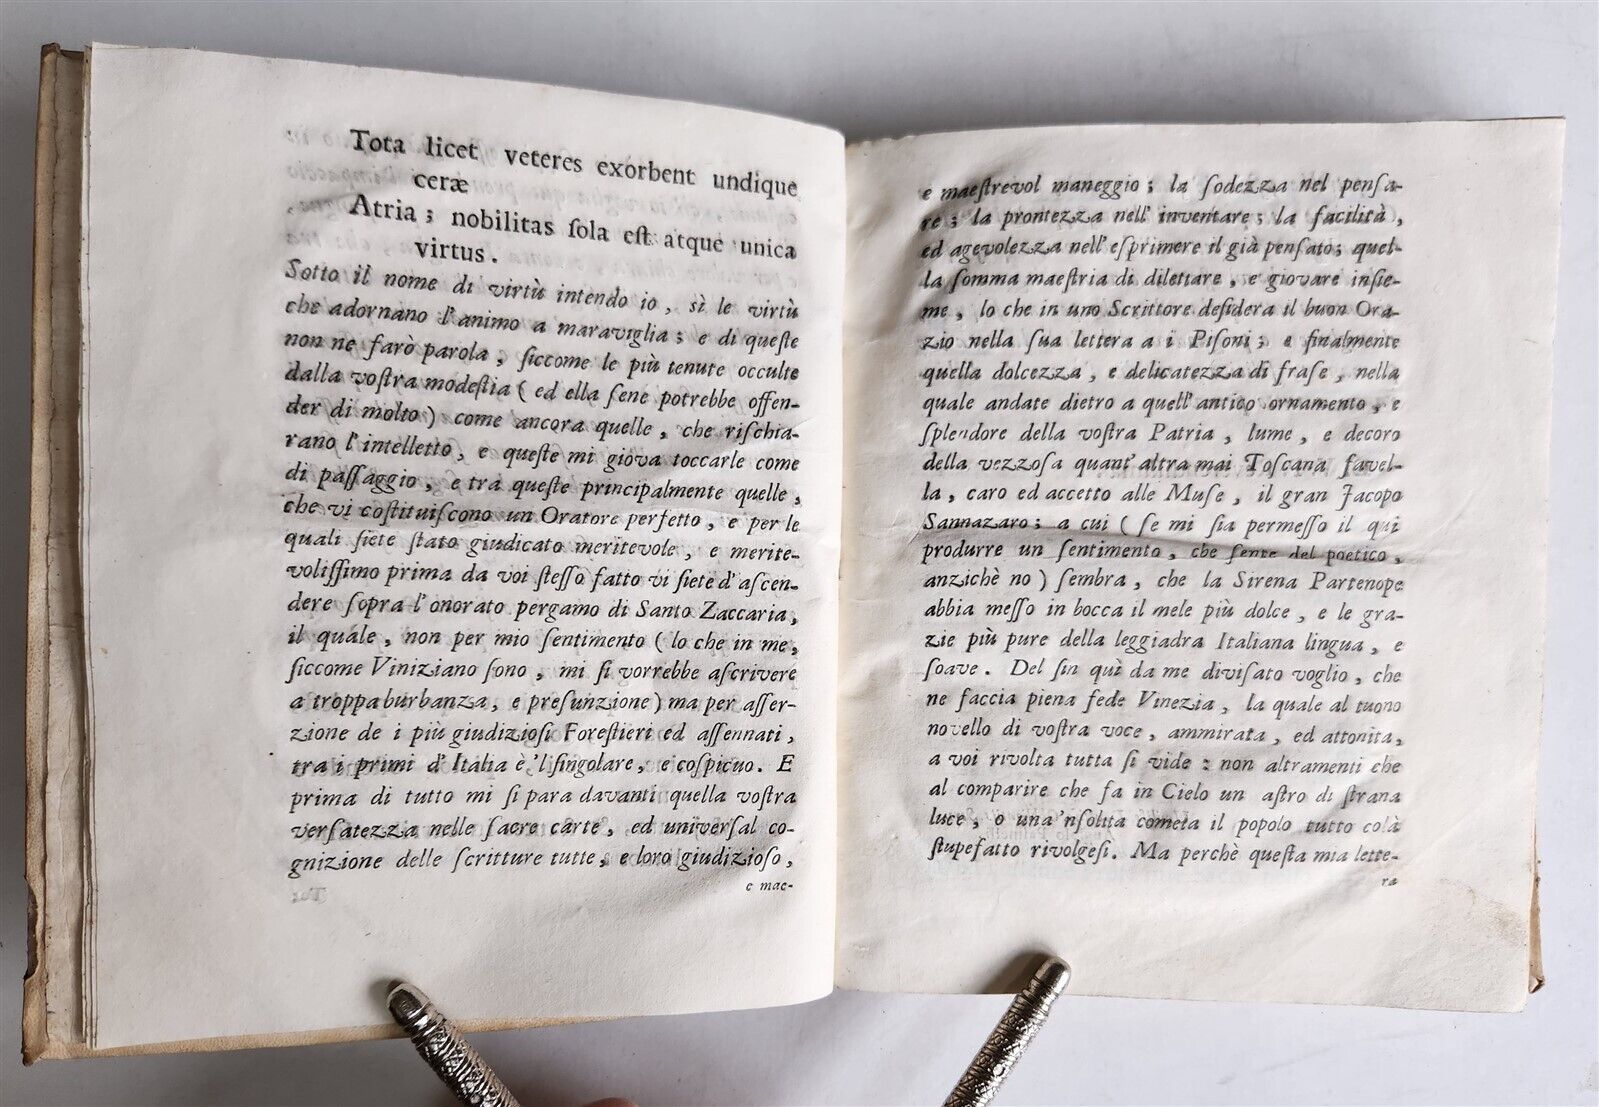 Tota licet veteres exorbent undique
ceræ
Atria; nobilitas ſola eſt atque unica
virtus.
Sotto il nome di virtù intendo io, sì le virtù
che adornano l'animo a maraviglia; e di queſte
non ne farò parola, ſiccome le più tenute occulte
dalla voſtra modeſtia (ed ella ſene potrebbe offen-
der di molto) come ancora quelle, che riſchia-
rano l'intelletto, e queſte mi giova toccarle come
di paſſaggio, e tra queſte principalmente quelle,
che vi coſtituiſcono un Oratore perfetto, e per le
quali ſiete ſtato giudicato meritevole, e merite-
voliſſimo prima da voi ſteſſo fatto vi ſiete d'aſcen-
dere ſopra l'onorato pergamo di Santo Zaccaria,
il quale, non per mio ſentimento (lo che in me,
ſiccome Viniziano ſono, mi ſi vorrebbe aſcrivere
a troppa burbanza, e preſunzione) ma per aſſer-
zione de i più giudizioſi Foreſtieri ed aſſennati,
tra i primi d'Italia è 'l ſingolare, e coſpicuo. E
prima di tutto mi ſi para davanti quella voſtra
verſatezza nelle ſacre carte, ed univerſal co-
gnizione delle ſcritture tutte, e loro giudizioſo,
e mae-
e maeſtrevol maneggio; la ſodezza nel penſa-
re; la prontezza nell'inventare; la facilità,
ed agevolezza nell'eſprimere il già penſato; quel-
la ſomma maeſtria di dilettare, e giovare inſie-
me, lo che in uno Scrittore deſidera il buon Ora-
zio nella ſua lettera a i Piſoni; e finalmente
quella dolcezza, e delicatezza di fraſe, nella
quale andate dietro a quell'antico ornamento, e
ſplendore della voſtra Patria, lume, e decoro
della vezzoſa quant'altra mai Toſcana favel-
la, caro ed accetto alle Muſe, il gran Jacopo
Sannazaro; a cui (ſe mi ſia permeſſo il qui
produrre un ſentimento, che ſente del poetico,
anzichè no) ſembra, che la Sirena Partenope
abbia meſſo in bocca il mele più dolce, e le gra-
zie più pure della leggiadra Italiana lingua, e
ſoave. Del ſin quì da me diviſato voglio, che
ne faccia piena fede Vinezia, la quale al tuono
novello di voſtra voce, ammirata, ed attonita,
a voi rivolta tutta ſi vide: non altramenti che
al comparire che fa in Cielo un aſtro di ſtrana
luce, o una 'nſolita cometa il popolo tutto colà
ſtupefatto rivolgeſi. Ma perchè queſta mia lette-
ra